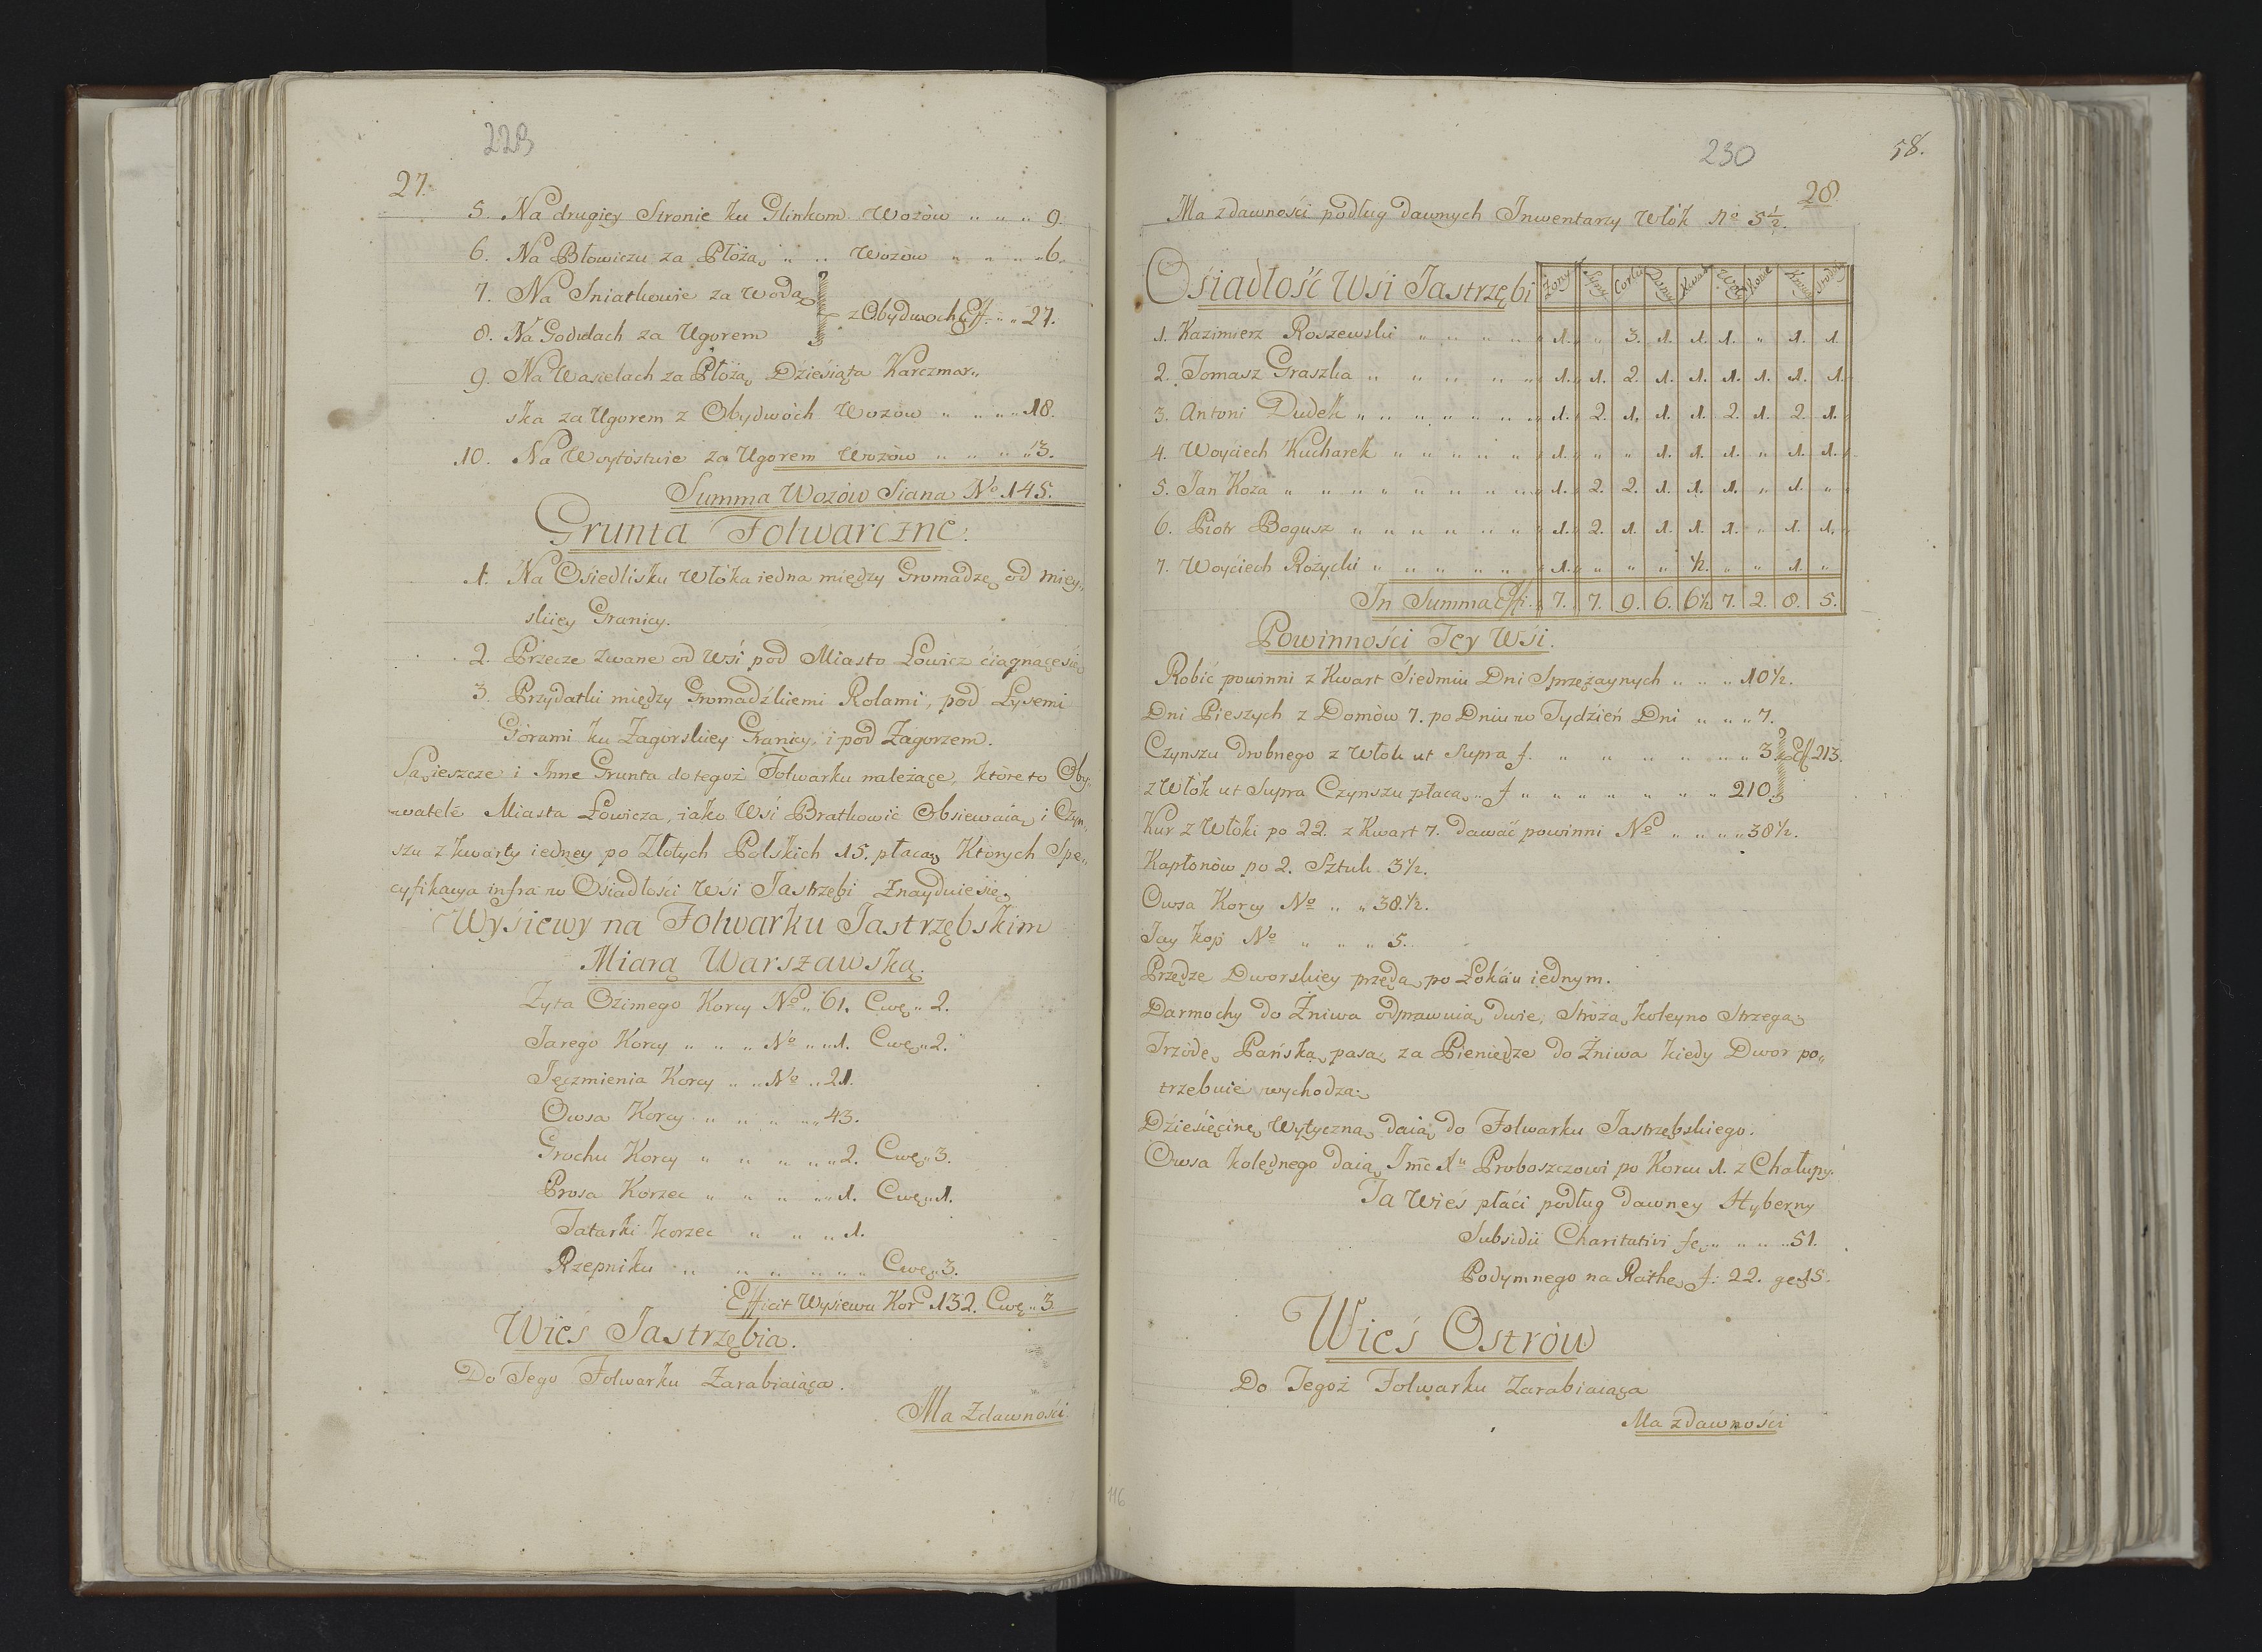 229
27.
5. Na drugiey Stronie ku Glinkom Wozòw " " " 9.
6. Na Błowiczu za Płożą " " Wozòw " " " " 6.
7. Na Sniatkowie za Wodą
z Obydwoch Eff. " " 27.
8. Na Godulach za Ugorem
9. Na Wasielach za Płożą Dziesiąta Karczmar„
ska za Ugorem z Obydwòch Wozòw " " " " 18.
10. Na Woytostwie za Ugorem Wozòw " " " " 13.
Summa Wozòw Siana No 145.
Grunta Folwarczne.
1. Na Osiedlisku Włóka iedna między Gromadzę od miey„
skiey Granicy.
2. Przecze zwane od Wsi pod Miasto Łowicz ciągnące się
3. Przydatki między Gromadźkiemi Rolami, pod Łysemi
Gòrami ku Zagorskiey Granicy, i pod Zagorzem.
Są ieszcze i Inne Grunta do tegoż Folwarku należące, ktòre to Oby„
watele Miasta Łowicza, iako Wsi Bratkowic Obsiewaią i Czyn„
szu z kwarty iedney po Złotych Polskich 15. płacą Ktorych Spe„
cyfikacya infra w Osiadłości Wsi Jastrzębi Znayduie się
Wysiewy na Folwarku Jastrzębskim
Miarą Warszawską.
Zyta Ozimego Korcy No " 61. Cwę " 2.
Jarego Korcy " " " No " " 1. Cwę " 2.
Jęczmienia Korcy " " No " 21.
Owsa Korcy " " " " " 43.
Grochu Korcy " " " " " 2. Cwę " 3.
Prosa Korzec " " " " " 1. Cwę " 1.
Tatarki korzec " " " 1.
Rzepniku " " " " " " Cwę " 3.
Efficit Wysiewu Kor 132. Cwę " 3
Wieś Jastrzębia.
Do Tego Folwarku Zarabiaiąca.
Ma Zdawności
230
58.
28.
Ma zdawności podług dawnych Inwentarzy Włók No 5 1/2.
Osiadłość Wsi Jastrzębi Żony Syny Corki Domy Kwart Woły Konie Krowy
1. Kazimierz Roszewski " " " " 1. " 3. 1. 1. 1. " 1. 1
2. Tomasz Graszka " " " " " 1. 1. 2. 1. 1. 1. 1. 1. 1.
3. Antoni Dudek " " " " " " 1. 2. 1. 1. 1. 2. 1. 2. 1.
4. Woyciech Kucharek " " " " " 1. " " 1. 1. 1. " 1. 1.
5. Jan Koza " " " " " " " " 1. 2. 2. 1. 1. 1. " 1. "
6. Piotr Bogusz " " " " " " 1. 2. 1. 1. 1. 1. " 1. 1.
7. Woyciech Rożycki " " " " " 1. " " " 1/2. " " 1. "
In Summa Effi. 7. 7. 9. 6. 6 1/2 7. 2. 8. 5.
Powinności Tey Wsi.
Robić powinni z Kwart Siedmiu Dni Sprzężaynych " " " 10 1/2.
Dni Pieszych z Domòw 7. po Dniu w Tydzień Dni " " " 7.
Czynszu drobnego z Włok ut Supra f. " " " " " " 3. Eff 213.
z Włók ut Supra Czynszu płacą " f " " " " " " " 210.
Kur z Włoki po 22. z Kwart 7. dawać powinni No " " " " 38 1/2.
Kapłonòw po 2. Sztuk 3 1/2.
Owsa Korcy No " " 38 1/2.
Jay kop No " " " 5.
Przędze Dworskiey przędą po Łokciu iednym.
Darmochy do Zniwa odprawuią dwie, Stròżą koleyno Strzegą
Trzodę Pańską pasą za Pieniędze do Żniwa kiedy Dwor po„
trzebuie wychodzą.
Dziesięcinę Wytyczną daią do Folwarku Jastrzębskiego.
Owsa kolędnego daią Proboszczowi po Korcu 1. z Chałupy.
Ta Wieś płaci podług dawney Hyberny
Subsidii Charitativi f " " " " 51.
Podymnego na Rathę f: 22. gr 15.
Wieś Ostrów
Do Tegoż Folwarku Zarabiaiąca
Ma zdawności
116